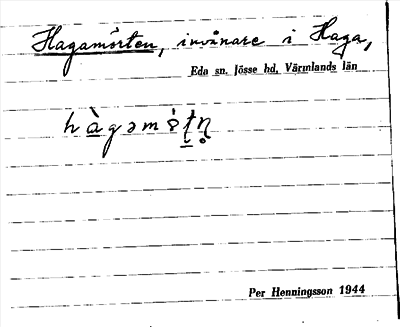 Hagamårten, invånare i Haga,
Eda sn. Jösse hd, Värmlands län
Per Henningsson 1944